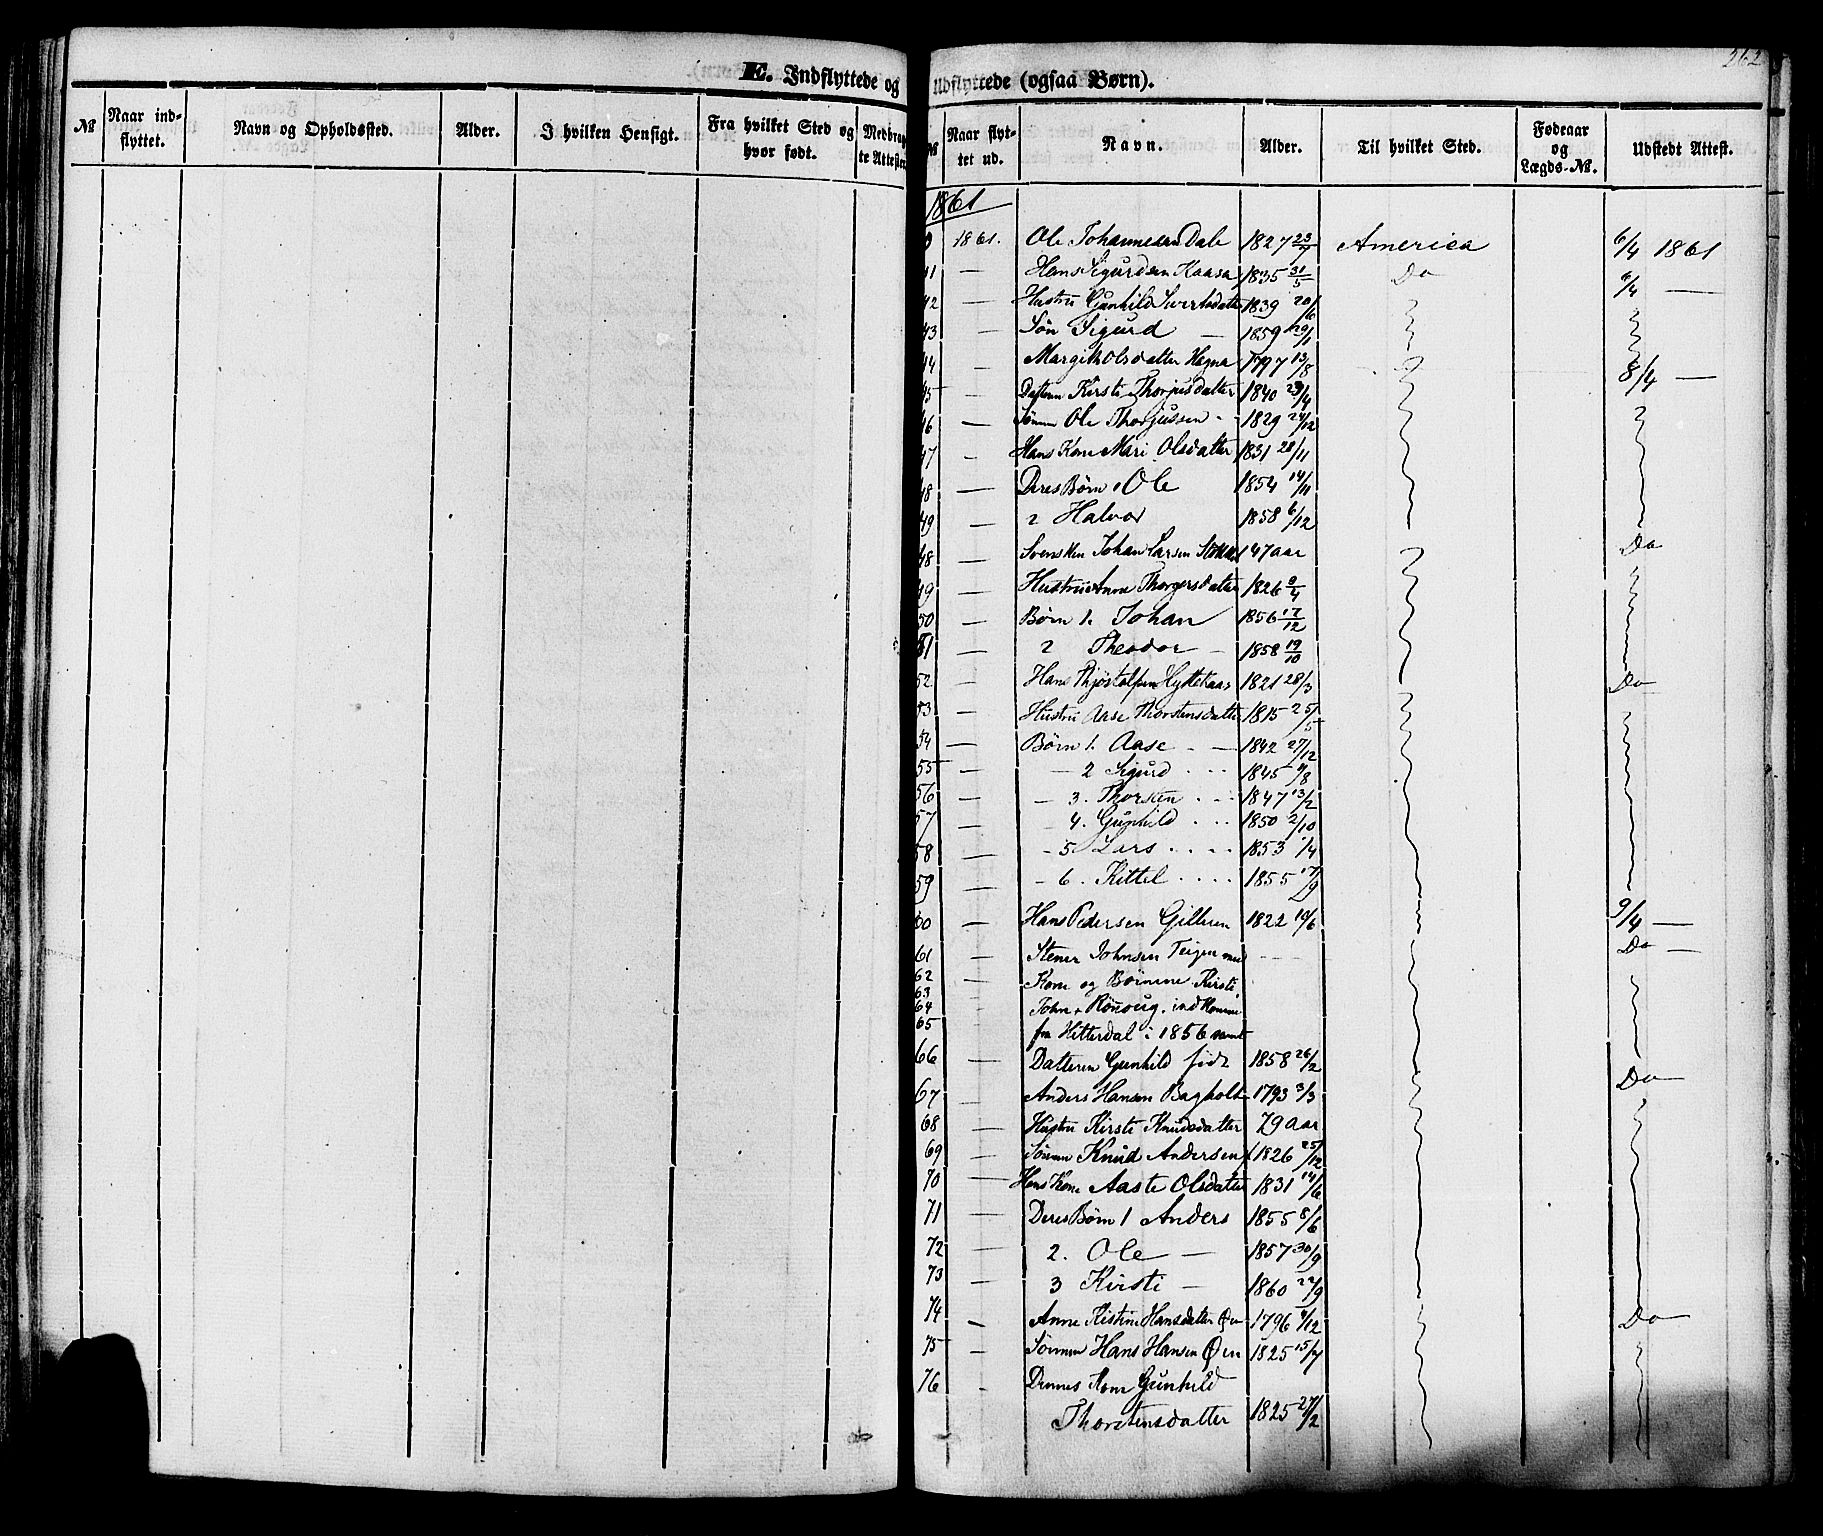 262
E. Indflyttede og Udflyttede (ogsaa Børn).
№ Naar indflyttet. Navn og Opholdssted. Alder. I hvilken Hensigt. Fra hvilket Sted og hvor født. Medbragte Attester
Naar flyttet ud. Navn. Alder. Til hvilket Sted. Fødeaar og Lægds-№. Udstedt Attest.
1861
1861. Ole Johannesen Dale 1827 23/7 America 6/4 1861
41 — Hans Sigurdsen Kaasa 1835 31/5 Do 6/4 —
42 — Hustru Gunhild 1839 20/6
43 — Søn Sigurd — 1859 29/1
44 — Margit Olsdatter Hegna 1797 13/8 8/4 —
45 — Datteren Kirsti Thorjusdatter 1840 29/4
46 — Sønnen Ole Thorjussen - 1829 24/12
47 — Hans Kone Mari Olsdatter 1831 28/11
48 — Deres Børn 1 Ole 1854 14/11
49 — 2 Halvor 1858 6/12
48 — Svensken Johan Larsen 47 aar Do
49 — Hustru Anne Thorgersdatter 1826 9/4
50 — Børn 1. Johan 1856 17/12
51 — 2 Theodor — 1858 19/10
52 — Hans Thjostolfsen Hyttekaas 1821 28/3 Do
53 — Hustru Aase Thorstensdatter 1815 25/5
54 — Børn 1. Aase - — 1842 27/12
55 — — 2 Sigurd . . . 1845 /8
56 — — 3. Thorsten . . . 1847 13/2
57 — - 4. Gunhild . . . 1850 2/10
58 — - 5. Lars . . . . 1853 1/4
59 — - 6. Kittel . . . . 1855 17/9
60 — Hans Pedersen 1822 19/6 9/4 —
61 — Stener Johnsen Teigen med - - - Do —
62 Kone og Børnene Kirsti,
63
64 John & Rønoug. indkomne
65 fra Hitterdal i 1856 samt
66 — Datteren Gunhild født 1858 26/2
67 — Anders Hansen Bagholt 1793 3/3 Do
68 — Hustru Kirsti Knudsdatter 79 aar
69 — Sønnen Knud Andersen 1826 25/12
70 — Hans Kone Aaste Olsdatter 1831 14/6
71 — Deres Børn 1 Anders 1855 8/6
72 — 2. Ole — 1857 30/9
73 — 3 Kirsti — 1860 22/9
74 — Anne Kistine Hansdatter Øen 1796 /12 Do
75 — Sønnen Hans Hansen Øen 1825 15/7
76 - Dennes Kone Gunhild
Thorstensdatter 1825 27/2